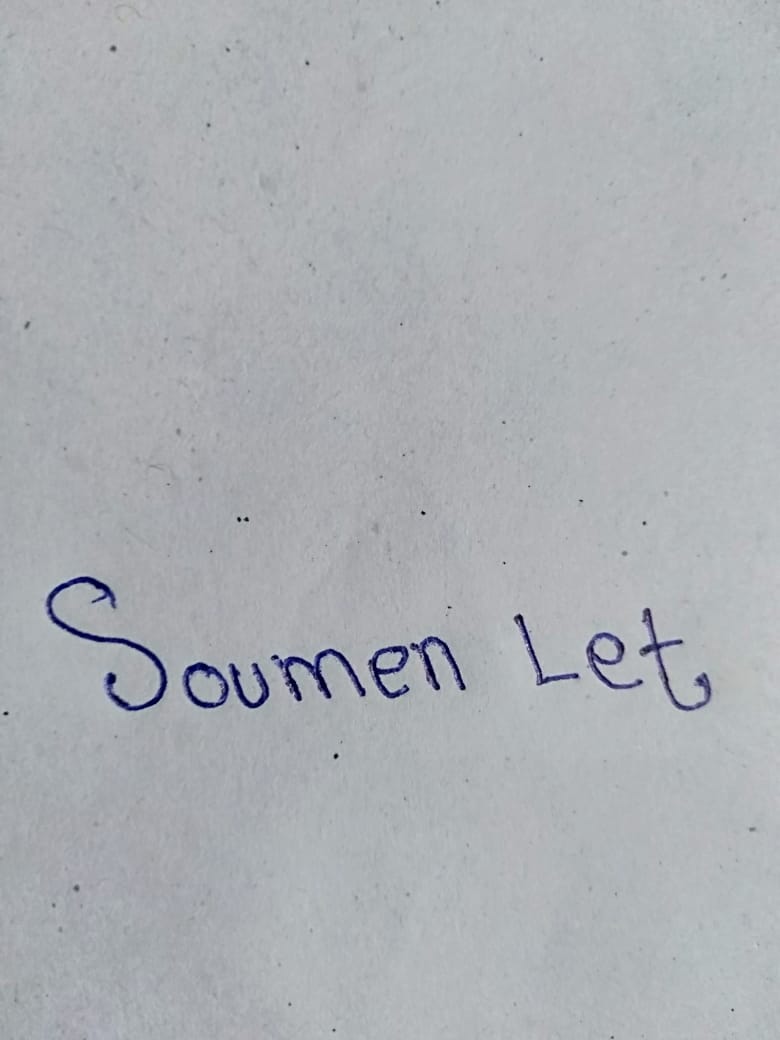 Soumen Let